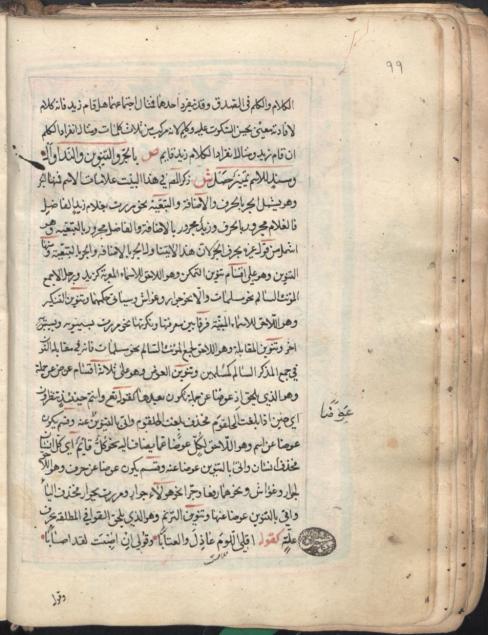 ٩٩
الكلام والكلم فى الصدق وقد ينفرد احدهما فمثال اجتماعهما هل قام زيد فانه كلام
لافادته معنى يحسن السكوت عليه وكلم لانه مركب من ثلاث كلمات ومثال انفراد الكلم
ان قام زيد ومثال انفراد الكلام زيد قايم ص بالجر والتنوين والندا وال
ومسند للاسم تمييز حصل ش ذكر المص فى هذا البيت علامات الاسم فمنها الجر
وهو يشمل الجر بالحرف والاضافة والتبعية نحو مررت بغلام زيد الفاضل
فالغلام مجرور بالحرف وزيد مجرور بالاضافة والفاضل مجرور بالتبعية وهو
اشمل من قول غيره بحرف الجر لان هذا لا يتناول الجر بالاضافة والجر بالتبعية ومنها
التنوين وهو على اقسام تنوين التمكن وهو اللاحق للاسماء المعربة كزيد ورجل الا جمع
المونث السالم نحو مسلمات والا نحو جوار وغواش وسياتى حكمهما وتنوين التنكير
وهو اللاحق للاسماء المبنية فرقا بين معرفتها ونكرتها نحو مررت بسيبويه وبسيبويه
اخر وتنوين المقابلة وهو اللاحق لجمع المونث السالم نحو مسلمات فانه فى مقابلة النون
فى جمع المذكر السالم كمسلمين وتنوين العوض وهو على ثلاثة اقسام عوض عن جملة
وهو الذى يلحق اذ عوضا عن جملة تكون بعدها كقوله تع وانتم حينئذ تنظرون
اى حين اذ بلغت الحلقوم فحذف بلغت الحلقوم واتى بالتنوين عنه وقسم يكون
عوضا
عوضا عن اسم وهو اللاحق لكل عوضا عما يضاف اليه نحو كل قائم اى كل انسان
فحذف انسان واتى بالتنوين عوضا عنه وقسم يكون عوضا عن حرف وهو اللاحق
لجوار وغواش ونحوهما رفعا وجرا نحو هولاء جوار ومررت بجوار فحذف اليا
واتى بالتنوين عوضا عنها وتنوين الترنم وهو الذى يلحق القوافى المطلقة بحرف
علة كقوله اقلى اللوم عاذل والعتابا وقولى ان اصبت لقد اصابا
وقوله